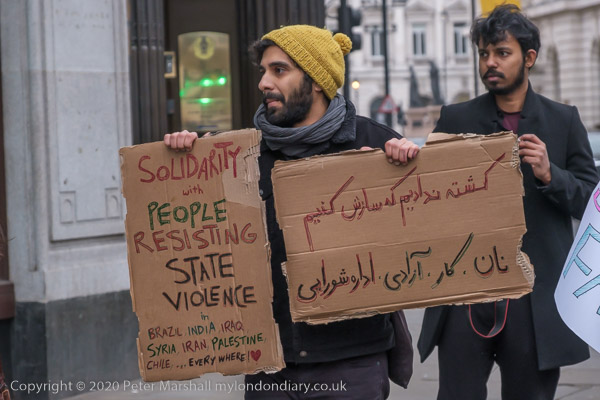 SOLIDARITY
with
PEOPLE
RESISTING
STATE
VIOLENCE
in
BRAZIL INDIA IRAQ
SYRIA IRAN PALESTINE
CHILE ... EVERYWHERE
کشته ندادیم که سازش کنیم
نان . کار . آزادی . اداره شورایی
Copyright © 2020 Peter Marshall mylondondiary.co.uk